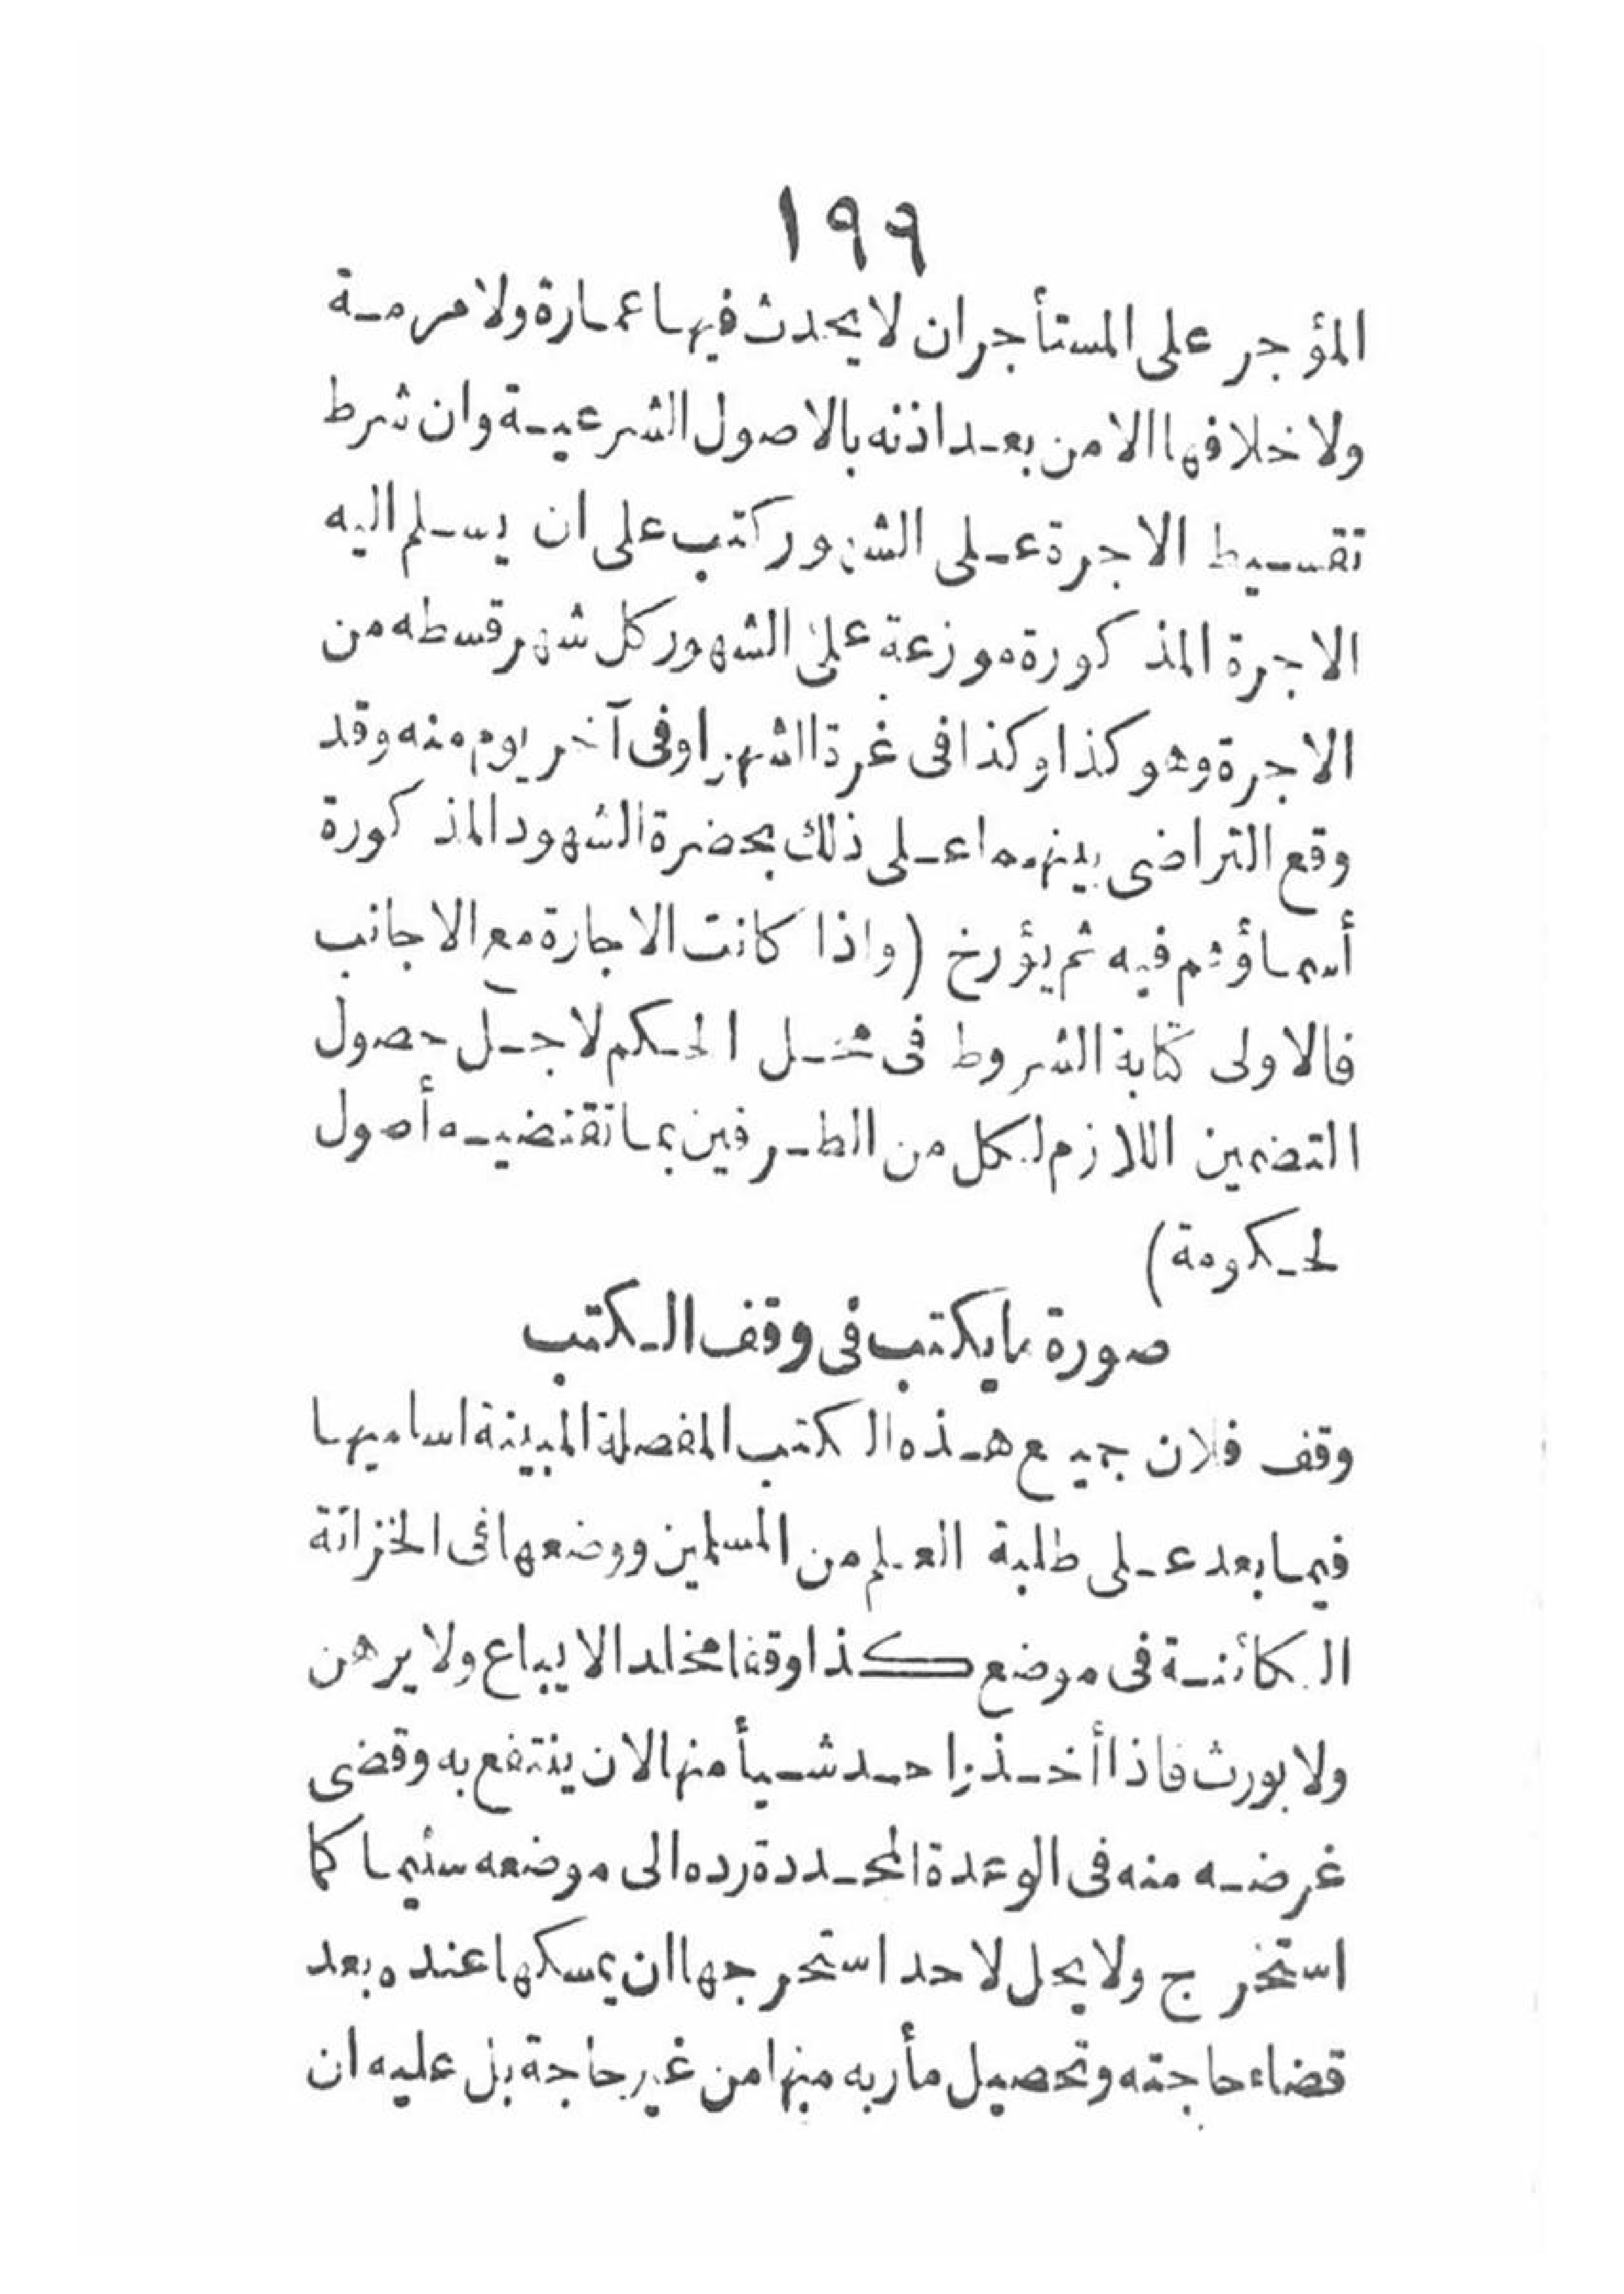 ١٩٩
المؤجر على المستأجر ان لا يحدث فيها عمارة ولا مرمة
ولا خلافها الا من بعد اذنه بالاصول الشرعية وان شرط
تقسيط الاجرة على الشهور كتب على ان يسلم اليه
الاجرة المذكورة موزعة على الشهور كل شهر قسطه من
الاجرة وهو كذا وكذا فى غرة الشهر او فى آخر يوم منه وقد
وقع التراضى بينهما على ذلك بحضرة الشهود المذكورة
أسماؤهم فيه ثم يؤرخ (واذا كانت الاجارة مع الاجانب
فالاولى كتابة الشروط فى محل الحكم لاجل حصول
التضمين اللازم لكل من الطرفين بما تقتضيه أصول
لحكومة)
صورة ما يكتب فى وقف الكتب
وقف فلان جميع هذه الكتب المفصلة المبينة اساميها
فيما بعد على طلبة العلم من المسلمين ووضعها فى الخزانة
الكائنة فى موضع كذا وقفا مخلدا لا يباع ولا يرهن
ولا يورث فاذا أخذ احد شيأ منها لان ينتفع به وقضى
غرضه منه فى الوعدة المحددة رده الى موضعه سليما كما
استخرج ولا يحل لاحد استخرجها ان يمسكها عنده بعد
قضاء حاجته وتحصيل مأربه منها من غير حاجة بل عليه ان